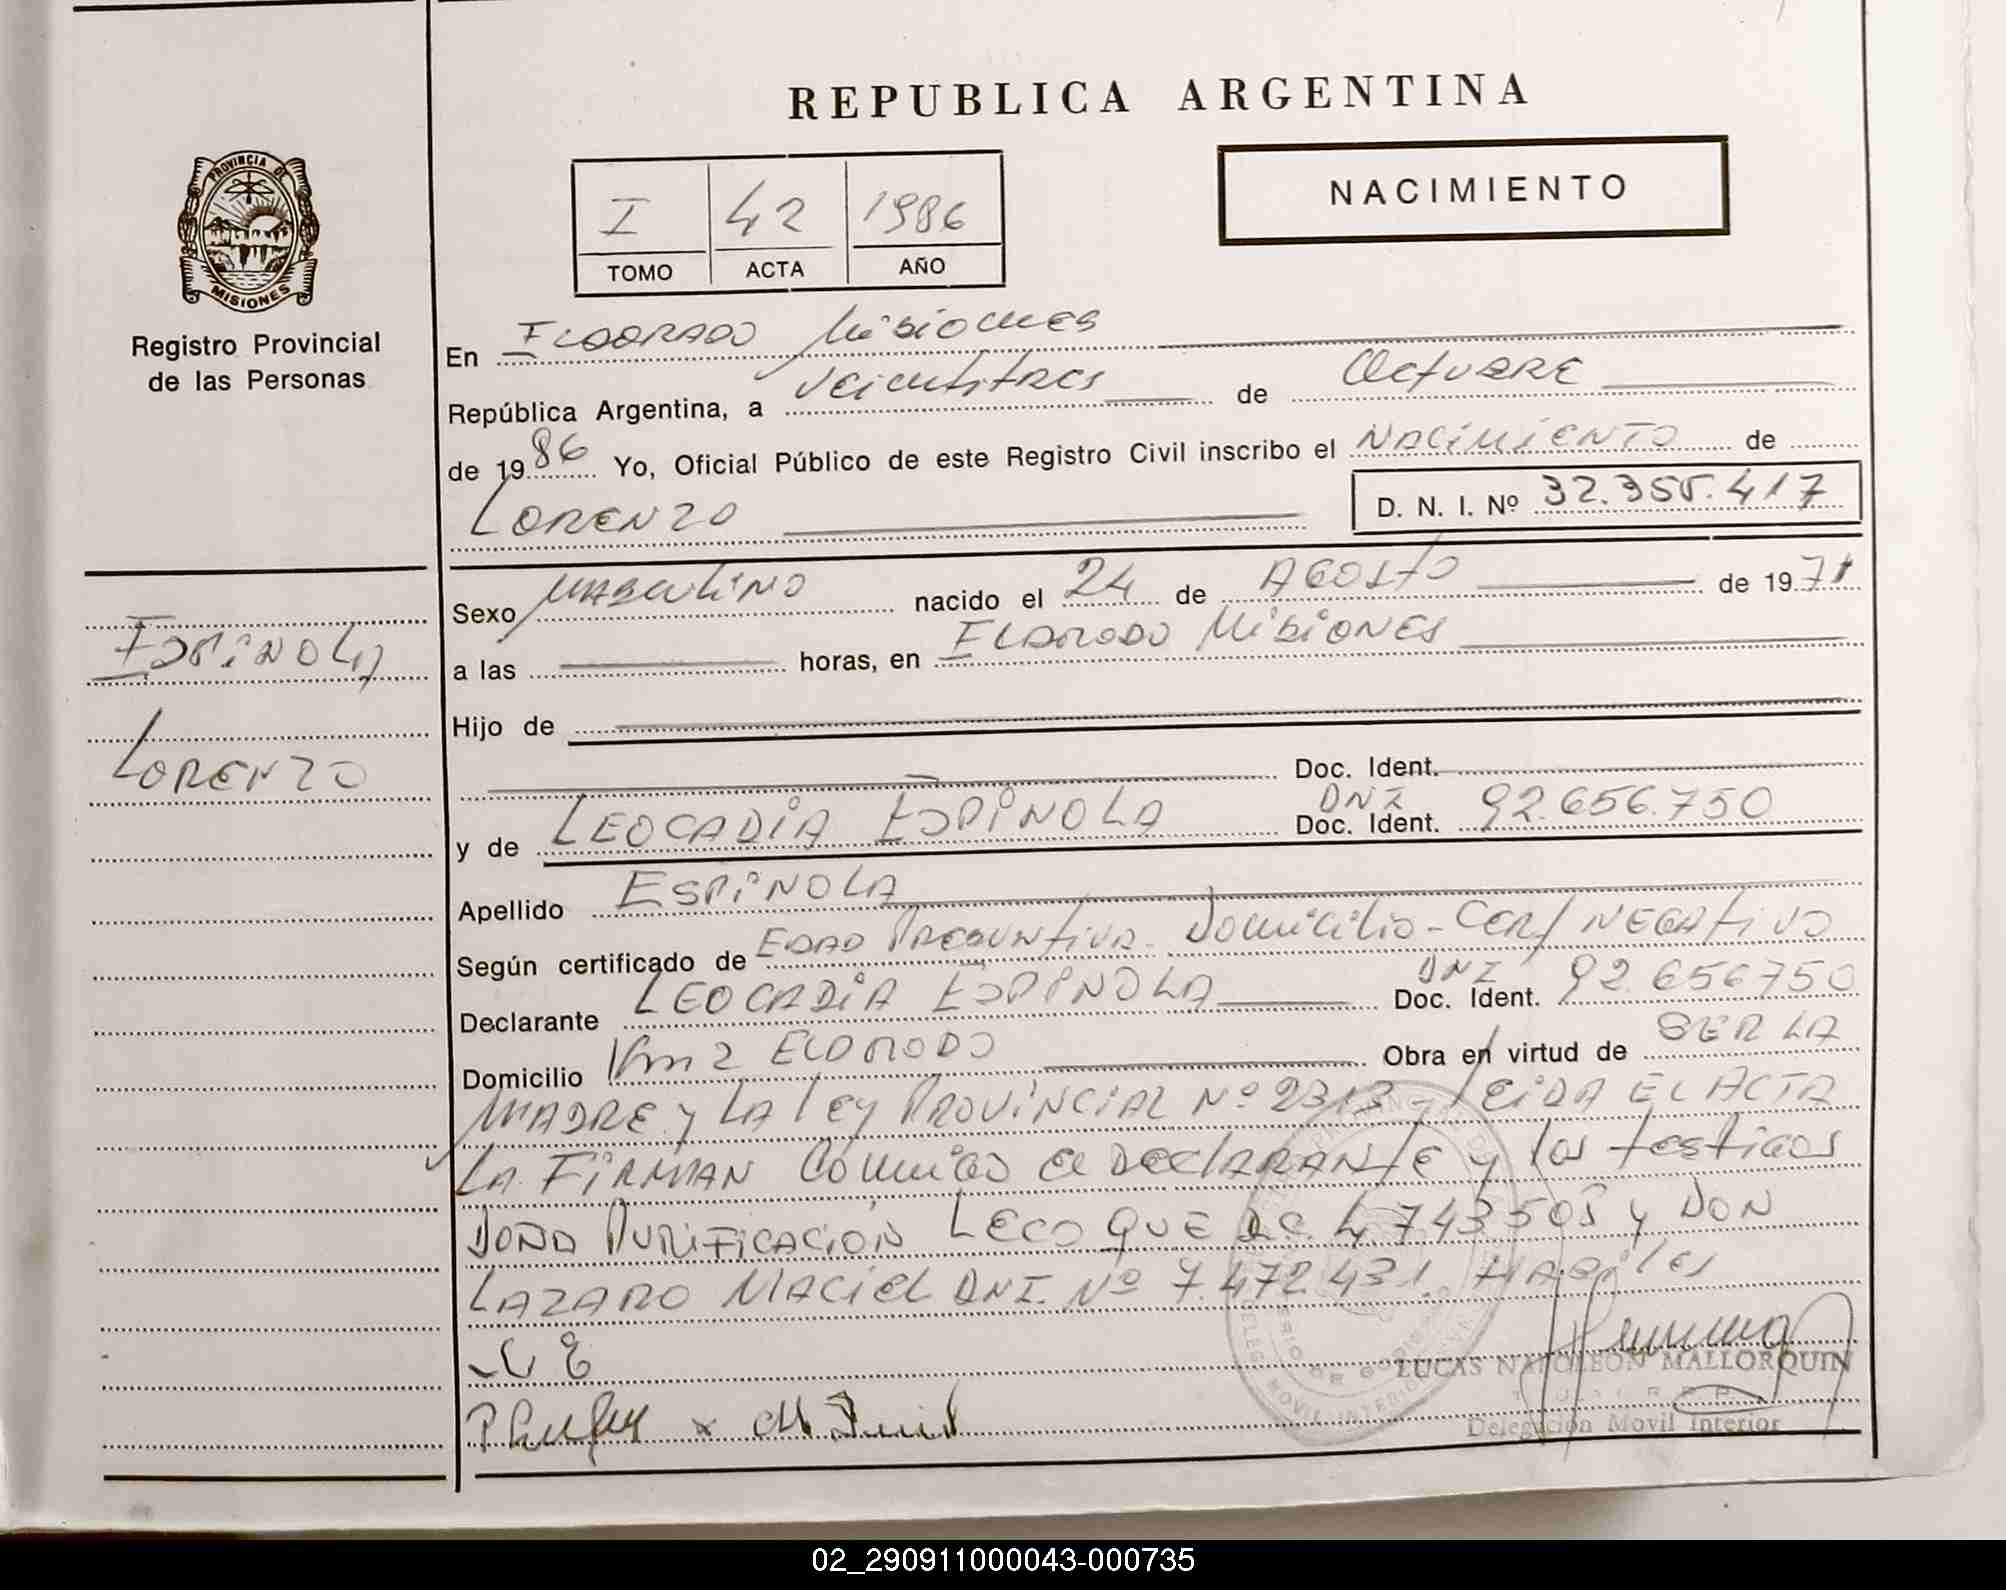 REPUBLICA ARGENTINA
NACIMIENTO
I 42 1986
TOMO ACTA AÑO
PROVINCIA DE
MISIONES
Registro Provincial
de las Personas
ESPINOLA
LORENZO
En ELDORADO Misiones
República Argentina, a veintitres de Octubre
de 1986 Yo, Oficial Público de este Registro Civil inscribo el NACIMIENTO de
LORENZO D. N. I. Nº 32.355.417
Sexo MASCULINO nacido el 24 de AGOSTO de 1971
a las horas, en ELDORADO MISIONES
Hijo de
Doc. Ident.
y de LEOCADIA ESPINOLA DNI Doc. Ident. 92.656.750
Apellido ESPINOLA
Según certificado de EDAD PRESUNTIVA - Domicilio - CERT NEGATIVO
Declarante LEOCADIA ESPINOLA DNI Doc. Ident. 92.656750
Domicilio Km 2 ELDORADO Obra en virtud de SER LA
MADRE y LA LEY PROVINCIAL Nº 2313 - LEIDA EL ACTA
LA FIRMAN Conmigo el DECLARANTE y los testigos
DOÑA PURIFICACIÓN y DON
LAZARO MACIEL DNI Nº 7.472.431. HABiles
LE
LUCAS NAPOLEON MALLORQUIN
Delegación Movil Interior
02_290911000043-000735